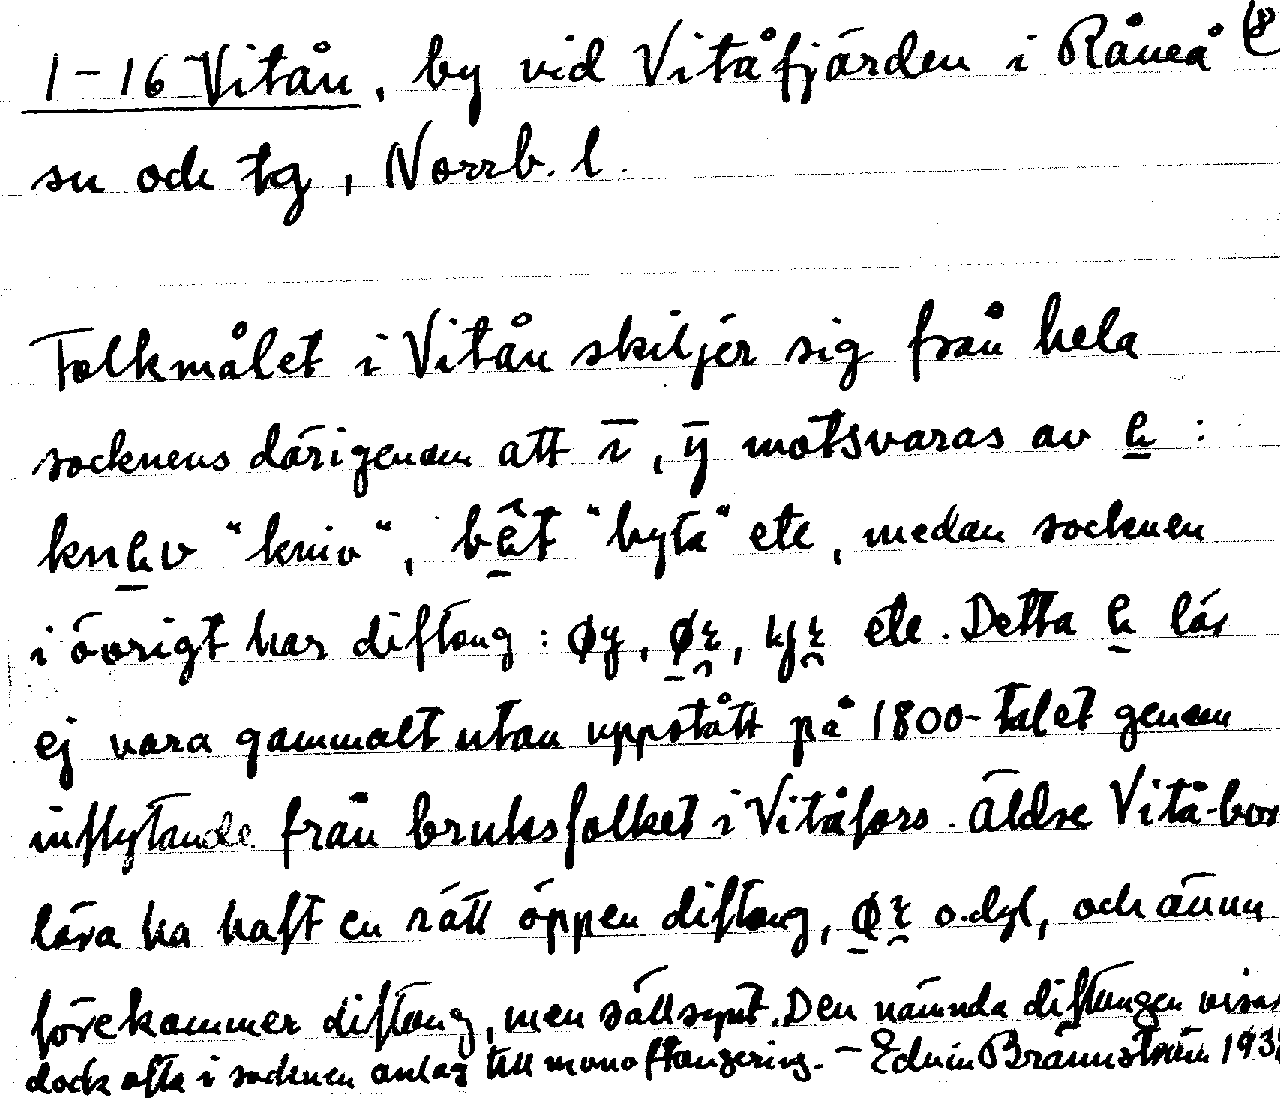 1–16 Vitån, by vid Vitåfjärden i Råneå
sn och tg, Norrb. l.
Folkmålet i Vitån skiljer sig från hela
socknens därigenom att ī, ȳ motsvaras av e̱ :
kne̱v "kniv", bê̱t "byta" etc, medan socknen
i övrigt har diftong : etc. Detta e̱ lär
ej vara gammalt utan uppstått på 1800-talet genom
inflytande från bruksfolket i Vitåfors. Äldre Vitå-bor
lära ha haft en rätt öppen diftong, o.dyl, och ännu
förekommer diftong, men sällsynt. Den nämnda diftongen visar
dock ofta i socknen anlag till monoftongering. – Edvin Brännström